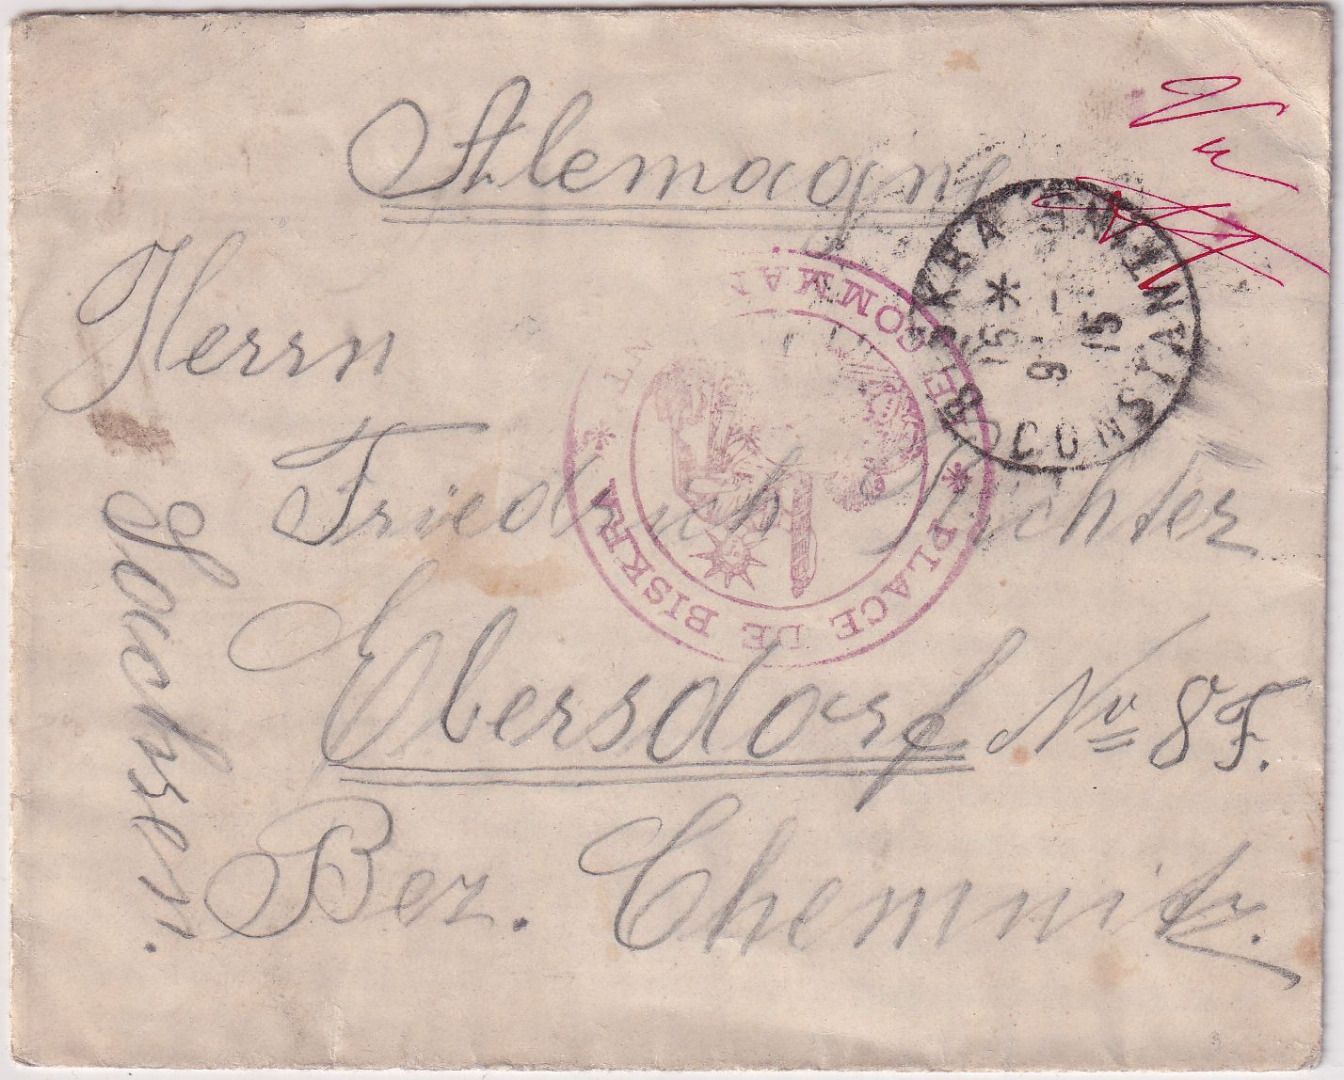 Allemagne
Vu
Herrn
Friedrich Richter
Ebersdorf Nu 8F.
Bez. Chemnitz.
Sachsen.
BISKRA CONSTANTINE
15 *
9 -
15
PLACE DE BISKRA